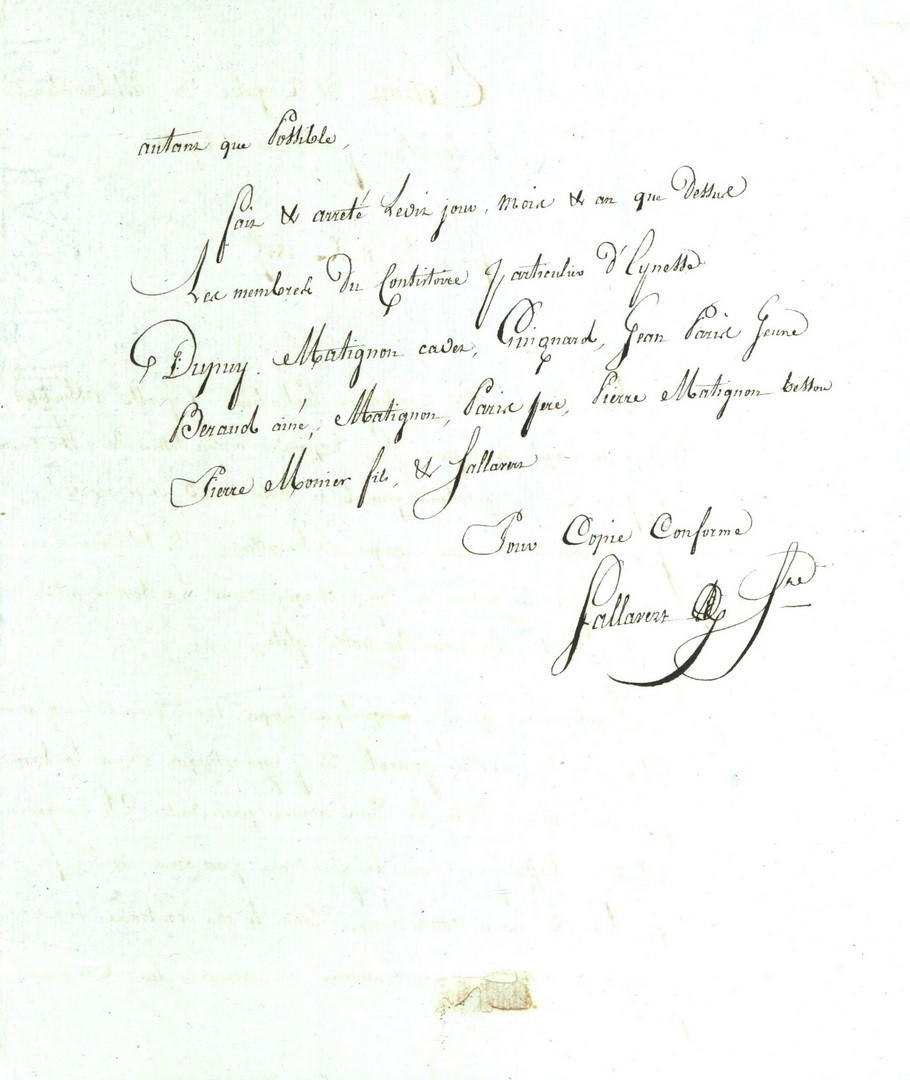 autant que Possible,
fait & arreté Ledit jour, mois & an que Dessus
Les membres du Consistoire Particulier d'Eynesse
Dupuy. Matignon cadet, Guignard, Jean Paris Jeune
Beraud ainé, Matignon, Paris pere, Pierre Matignon besson
Pierre Monier fils, & Sallavert
Pour Copie Conforme
Sallavert Sre